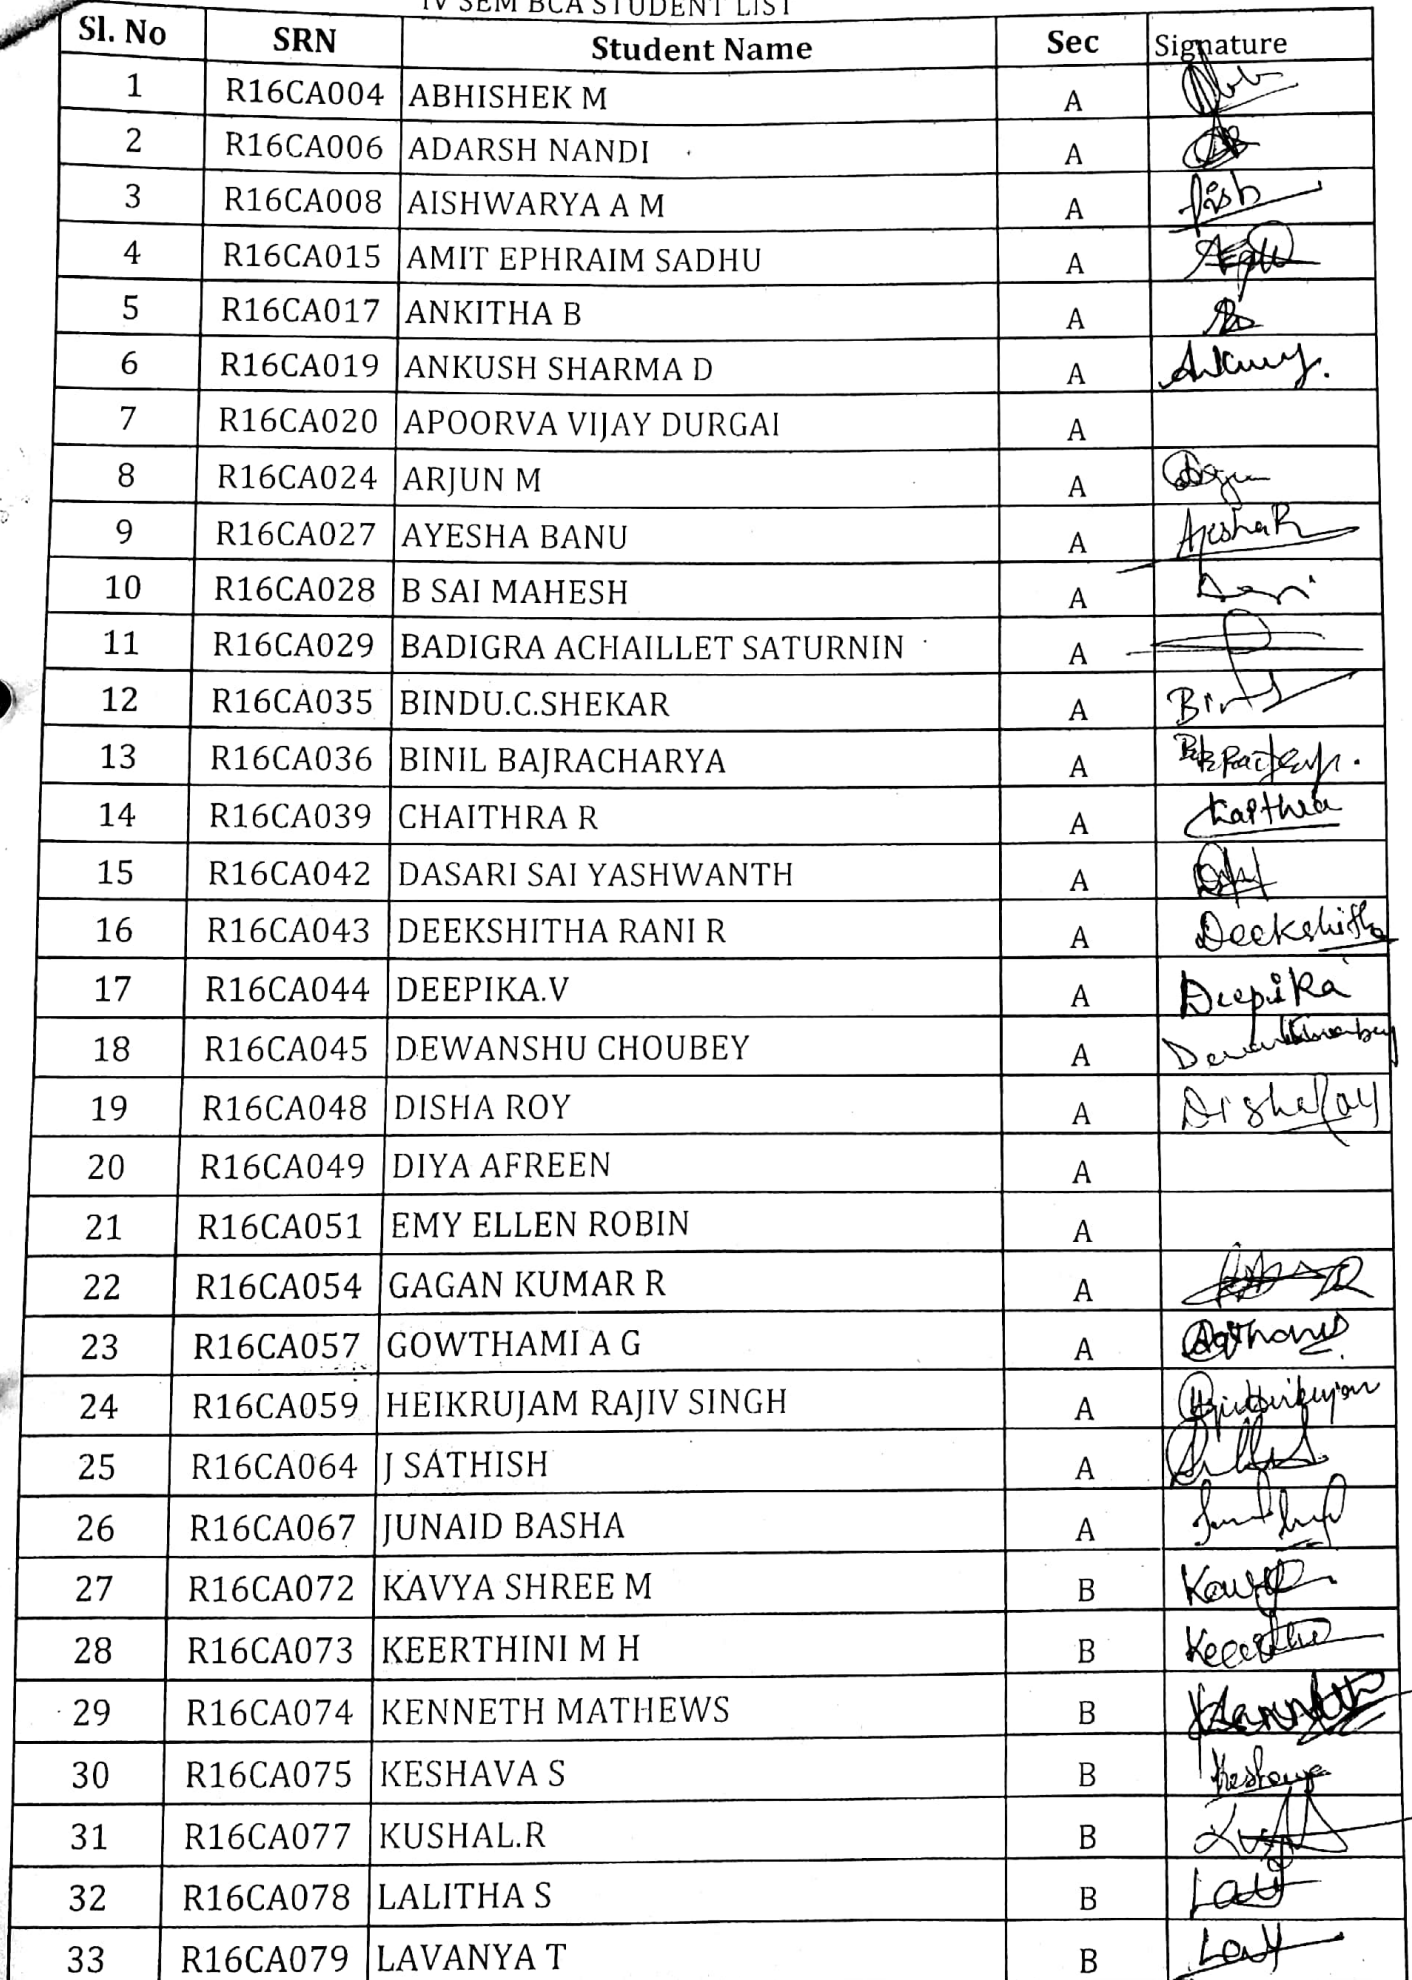 IV SEM BCA STUDENT LIST
Sl. No SRN Student Name Sec Signature
1 R16CA004 ABHISHEK M A
2 R16CA006 ADARSH NANDI A
3 R16CA008 AISHWARYA A M A Aish
4 R16CA015 AMIT EPHRAIM SADHU A
5 R16CA017 ANKITHA B A
6 R16CA019 ANKUSH SHARMA D A
7 R16CA020 APOORVA VIJAY DURGAI A
8 R16CA024 ARJUN M A
9 R16CA027 AYESHA BANU A
10 R16CA028 B SAI MAHESH A
11 R16CA029 BADIGRA ACHAILLET SATURNIN A
12 R16CA035 BINDU.C.SHEKAR A
13 R16CA036 BINIL BAJRACHARYA A
14 R16CA039 CHAITHRA R A
15 R16CA042 DASARI SAI YASHWANTH A
16 R16CA043 DEEKSHITHA RANI R A Deekshitha
17 R16CA044 DEEPIKA.V A Deepika
18 R16CA045 DEWANSHU CHOUBEY A
19 R16CA048 DISHA ROY A Disha Roy
20 R16CA049 DIYA AFREEN A
21 R16CA051 EMY ELLEN ROBIN A
22 R16CA054 GAGAN KUMAR R A
23 R16CA057 GOWTHAMI A G A
24 R16CA059 HEIKRUJAM RAJIV SINGH A
25 R16CA064 J SATHISH A
26 R16CA067 JUNAID BASHA A
27 R16CA072 KAVYA SHREE M B
28 R16CA073 KEERTHINI M H B
29 R16CA074 KENNETH MATHEWS B
30 R16CA075 KESHAVA S B Keshava
31 R16CA077 KUSHAL.R B
32 R16CA078 LALITHA S B
33 R16CA079 LAVANYA T B